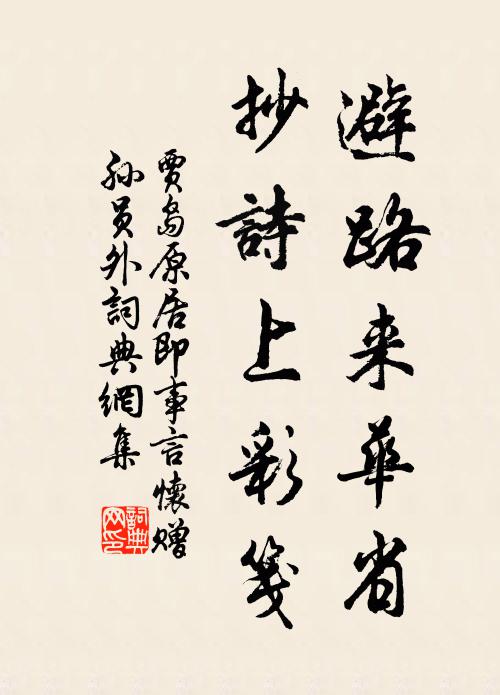 避路来華省
抄詩上彩箋
賈島原居即事言懷贈
孙員外詞典網集
詞典
网印